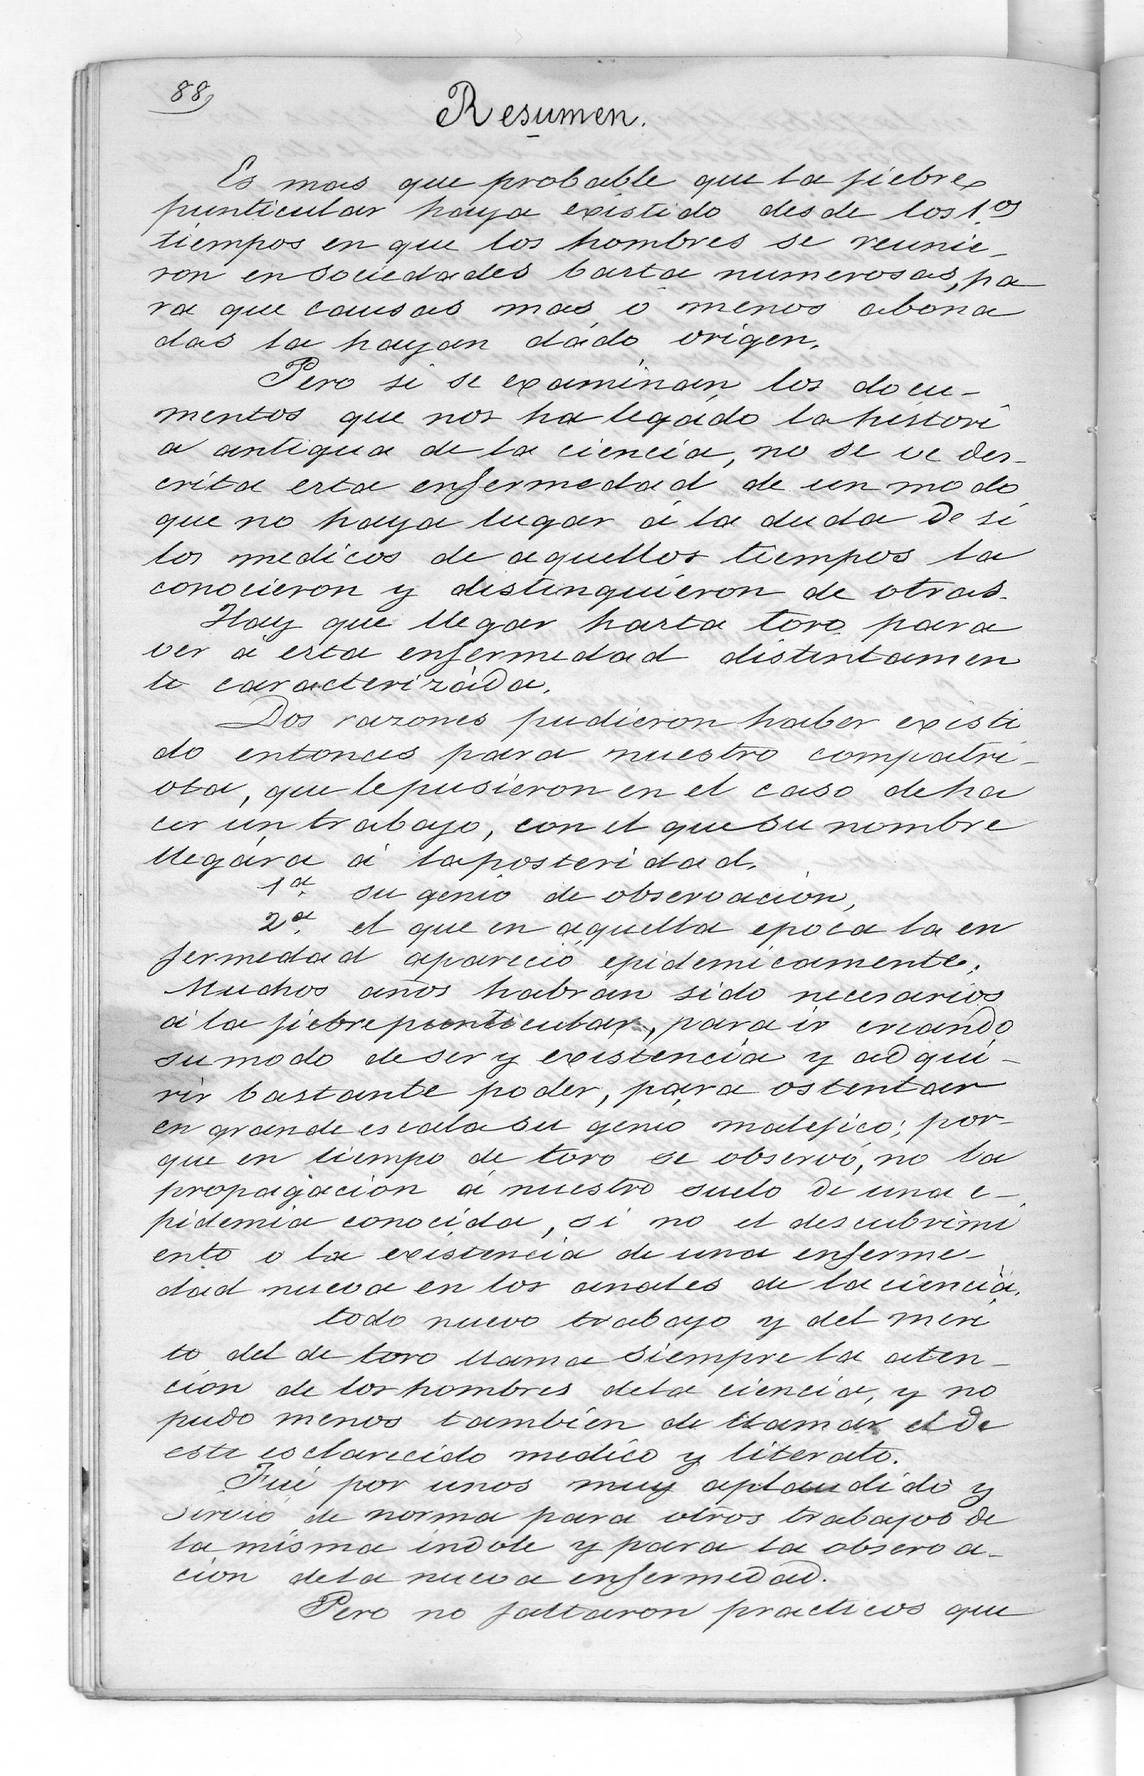 88
Resumen.
Es mas que probable que la fiebre
punticular haya existido desde los 1.os
tiempos en que los hombres se reunie-
ron en sociedades basta numerosas, pa
ra que causas mas ó menos abona
das la hayan dádo origen.
Pero si se examinan los docu-
mentos que nos ha legádo la histori
a antigua de la ciencia, no se ve des-
crita esta enfermedad de un modo
que no haya lugar á la duda de si
los medicos de aquellos tiempos la
conocieron y distinquieron de otras.
Hay que llegar hasta toro para
ver a esta enfermedad distintamen
te caracterizáda.
Dos razones pudieron haber existi
do entonces para nuestro compatri-
ota, que le pusieron en el caso de ha
cer un trabajo, con el que su nombre
llegára á la posteridad.
1.a su genio de observación,
2.a el que en aquella epoca la en
fermedad apareció epidemicamente.
Muchos años habrán sido necesarios
á la fiebre punticular, para ir creando
su modo de ser y existencia y adqui-
rir bastante poder, para ostentar
en grande escala su genio malefico; por-
que en tiempo de toro se observó, no la
propagación á nuestro suelo de una e-
pidemia conocida, si no el descubrimi
ento o la existencia de una enferme-
dad nueva en los anales de la ciencia.
todo nuevo trabajo y del meri
to del de toro llama siempre la aten-
cion de los hombres de la ciencia, y no
pudo menos tambien de llamar el de
este esclarecido medico y literato.
Fué por unos muy aplaudido y
sirvió de norma para otros trabajos de
la misma indole y para la observa-
ción de la nueva enfermedad.
Pero no faltaron practicos que